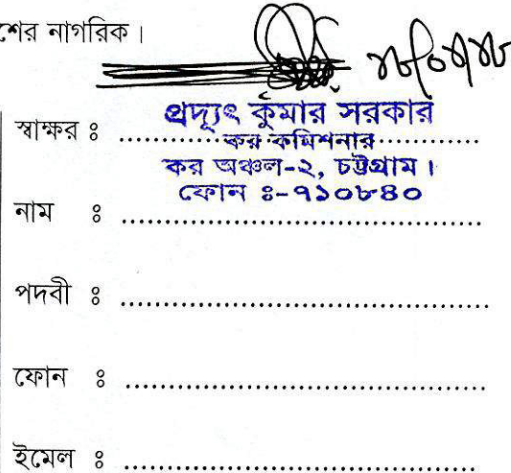 শের নাগরিক।
স্বাক্ষর ঃ
প্রদ্যুৎ কুমার সরকার
কর কমিশনার
কর অঞ্চল-২, চট্টগ্রাম।
ফোন ঃ-৭১০৮৪০
নাম ঃ
পদবী ঃ
ফোন ঃ
ইমেল ঃ